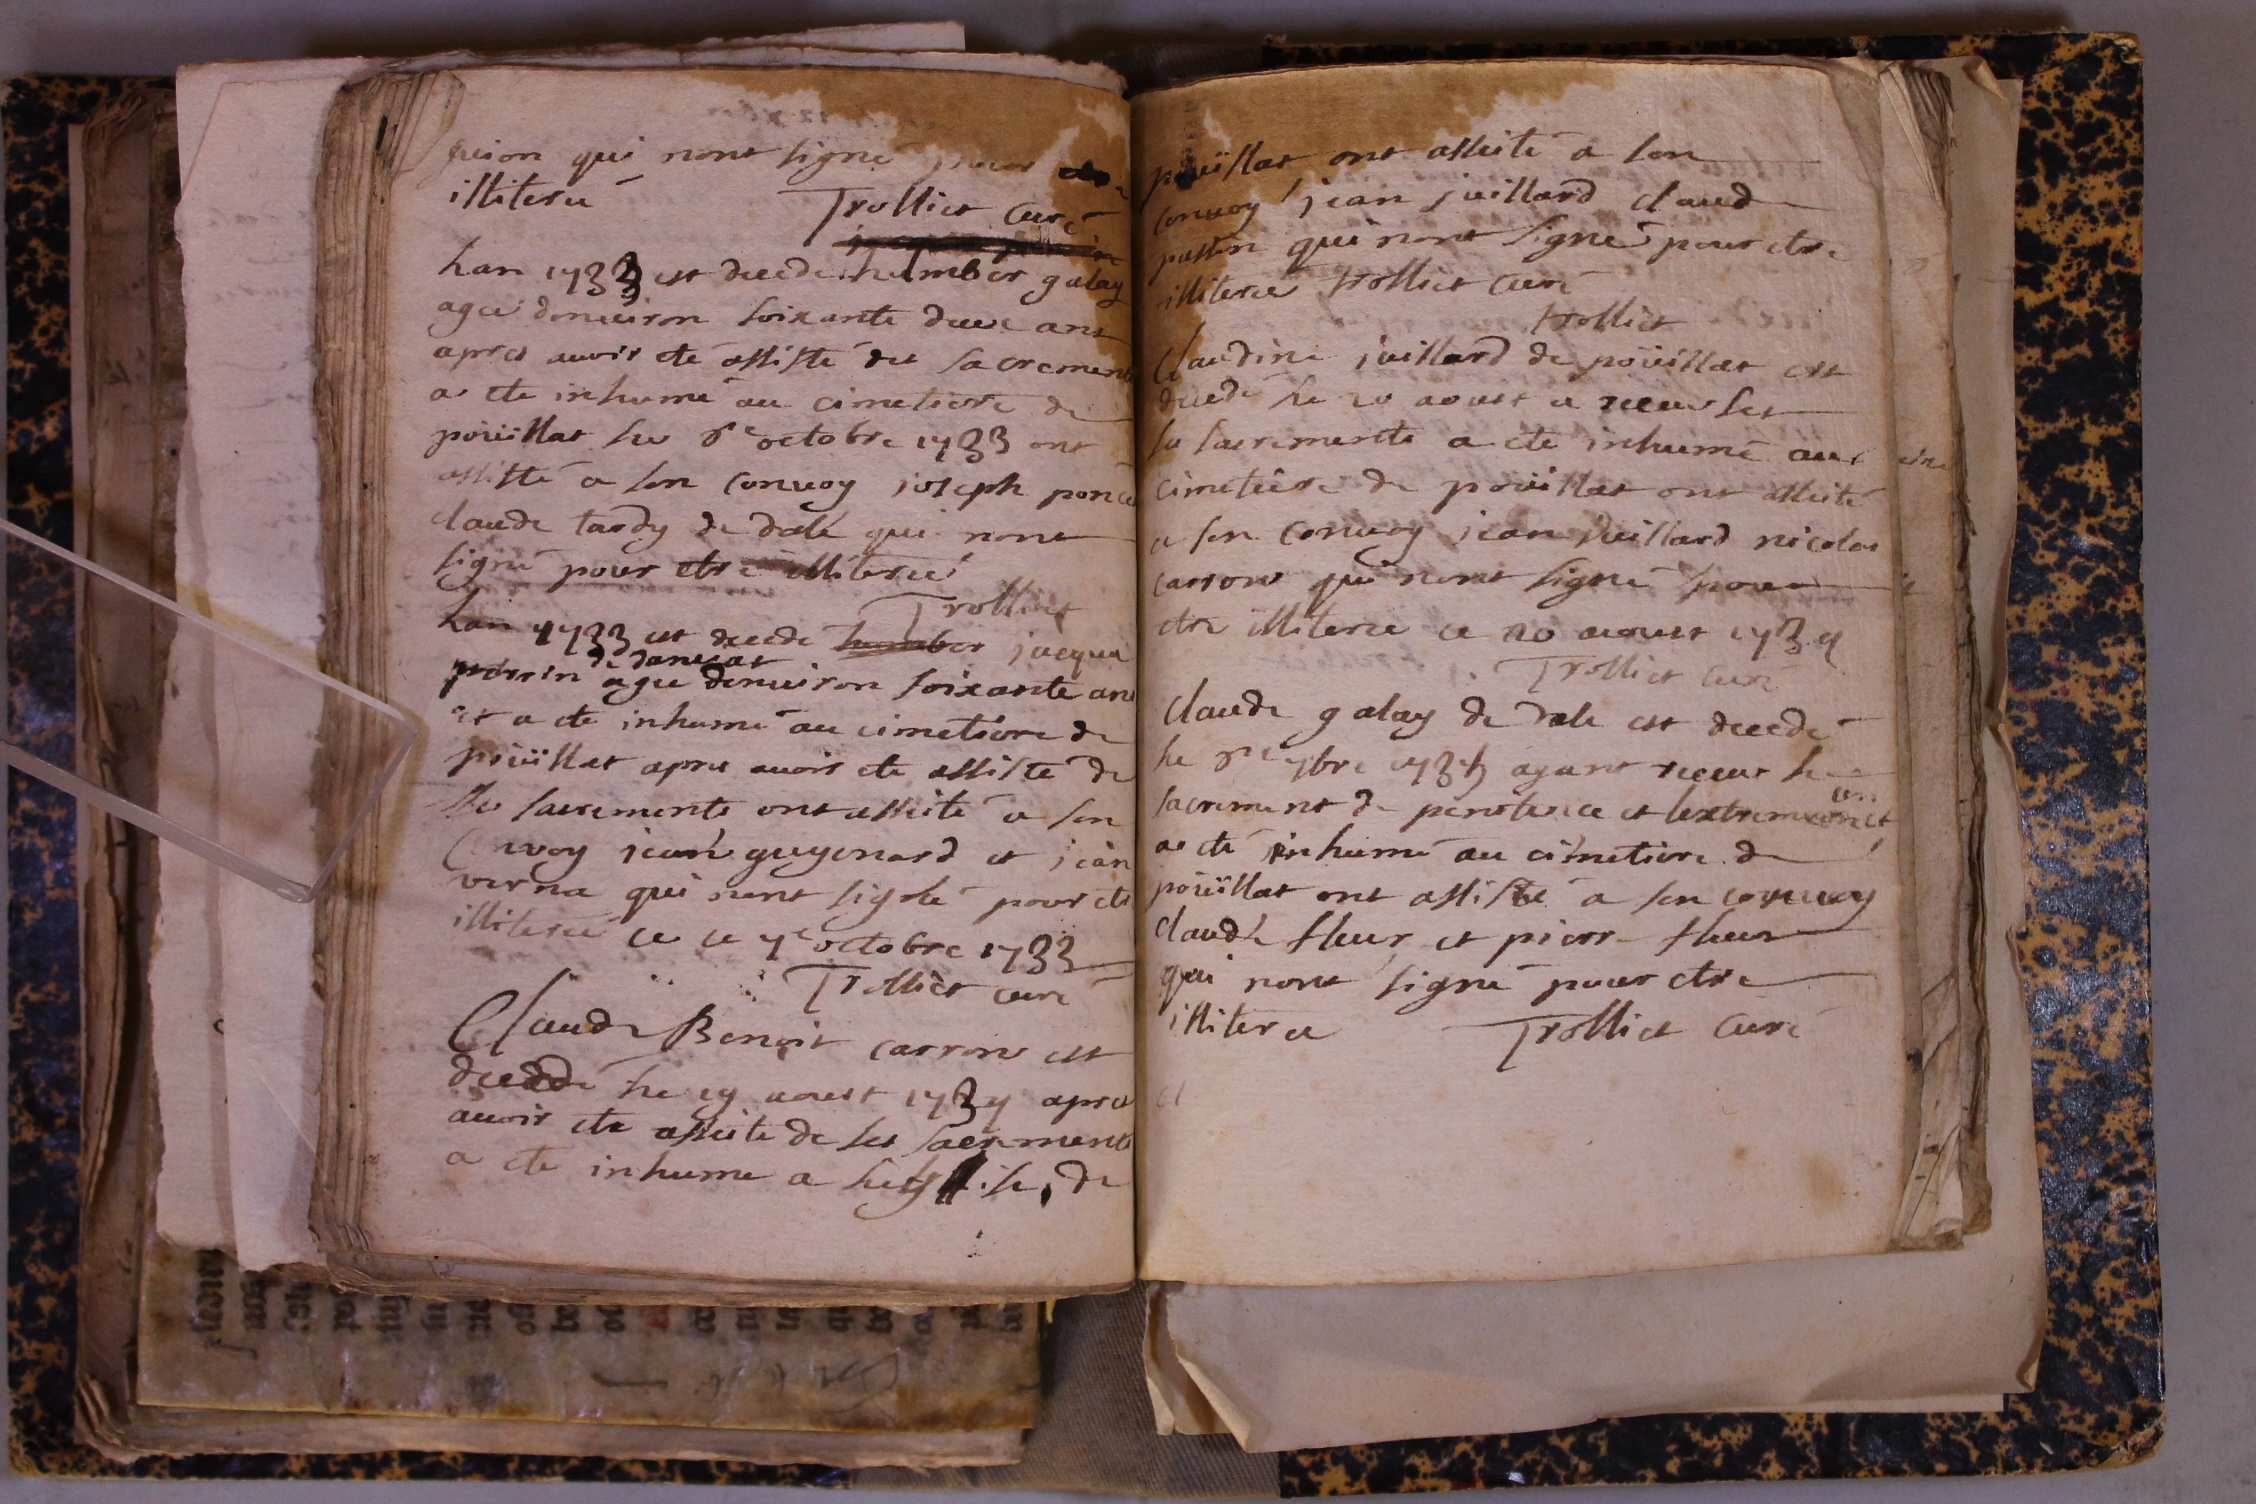 qui nont signé pour
illiteré
Trolliet Curé
lan 1733 est decede humber galay
agé denuiron soixante deux ans
apres auoir eté assisté des sacrements
a ete inhumé au cimetiere de
poüillat le 6e octobre 1733 ont
assisté a son conuoy joseph poncé
claude tardy de dalé qui nont
signé pour etre illiteré
Trolliet
lan 1733 est decede humber jacque
de dancia
perrin agé denuiron soixante ans
et a ete inhumé au cimetiere de
poüillat apres auoir ete assisté de
ses sacrements ont assité a son
Convoy jean guyenard et jean
verna qui nont signé pour ete
illiteré ce ce 7e octobre 1733
Trolliet curé
Claude Benoit carron est
decedé le 19 aoust 1734 apres
auoir ete assité de ses sacrements
a ete inhume a de
poüillat ont assité a son
conuoy jean juillard claude
qui nont signé pour etre
illiteré trolliet curé
trolliet
Claudine juillard de poüillat est
decedé le 20 aoust a receu ses
sacrements a ete inhumé au
cimetiere de poüillat ont assité
a son conuoy jean juillard nicolas
carron qui nont signé pour
etre illiteré ce 20 aoust 1734
Trolliet curé
Claude galay de dale est decedé
le 6e 7bre 1734 ayant receu le
sacrement de penitence et
a eté inhumé au cimetiere de
poüillat ont assisté a son conuoy
claude fleur et pierre fleur
qui nont signé pour etre
illiteré Trolliet Curé